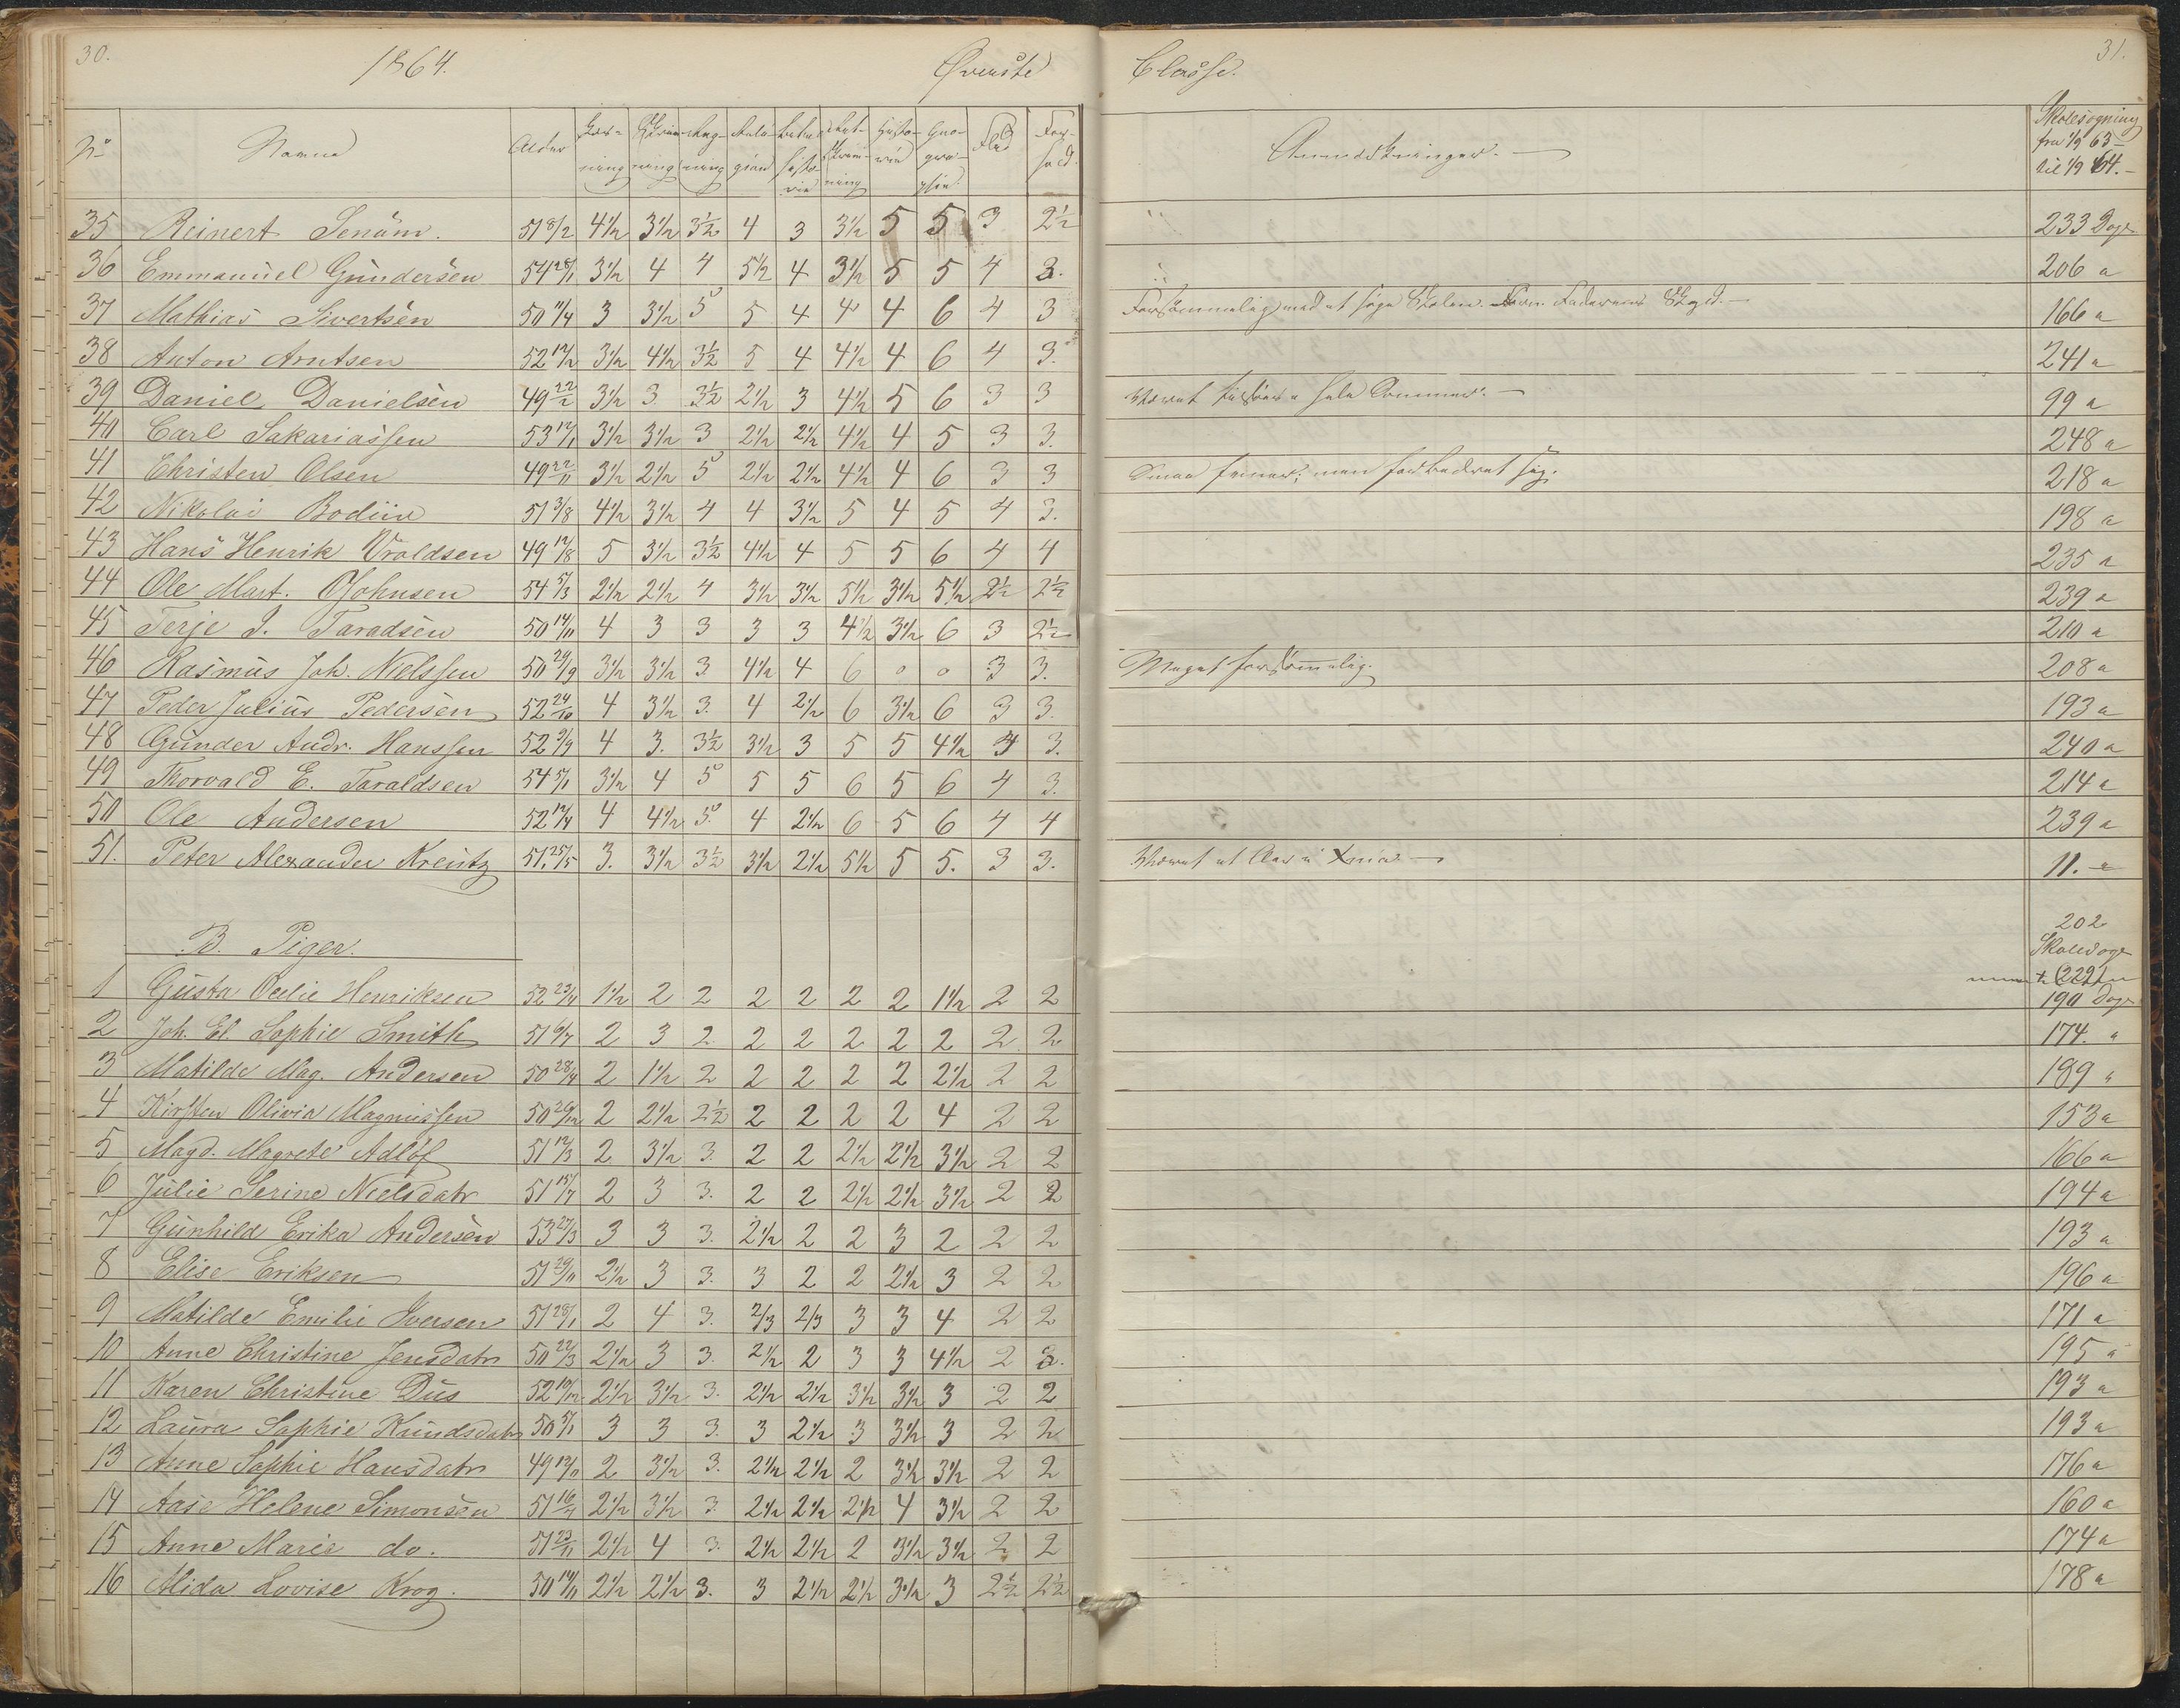 30. 1864. Øverste Classe. 31.
No Navne Alder Læsning Skrivning Regning Religion Bibelhistorie Retskrivning Historie Geografie Flid Forhold Anmærkninger. Skolesøgning fra 1/9 63 til 1/9 64.
35 Reinert Senum. 51 8/2 4½ 3½ 3½ 4 3 3½ 5 5 3 2½ 233 Dage
36 Emmanuel Gundersen 54 28/1 3½ 4 4 5½ 4 3½ 5 5 4 3. 206 "
37 Mathias Sivertsen 50 11/4 3 3½ 5 5 4 4 4 6 4 3 Forsømmelig med at søge Skolen. Faderens Skyld. 166 "
38 Anton Arntsen 52 12/12 3½ 4½ 3½ 5 4 4½ 4 6 4 3. 241 "
39 Daniel Danielsen 49 22/2 3½ 3 3½ 2½ 3 4½ 5 6 3 3 Været tilsøes hele Sommer. 99 "
40 Carl Sakariassen 53 12/1 3½ 3½ 3 2½ 2½ 4½ 4 5 3 3. 248 "
41 Christen Olsen 49 22/11 3½ 2½ 5 2½ 2½ 4½ 4 6 3 3 men forbedret sig. 218 "
42 Nikolai Bodiin 51 3/8 4½ 3½ 4 4 3½ 5 4 5 4 3. 198 "
43 Hans Henrik Vroldsen 49 12/8 5 3½ 3½ 4½ 4 5 5 6 4 4 235 "
44 Ole Mart. Johnsen 54 5/3 2½ 2½ 4 3½ 3½ 5½ 3½ 5½ 2½ 2½ 239 "
45 Terje J. Taradsen 50 14/11 4 3 3 3 3 4½ 3½ 6 3 2½ 210 "
46 Rasmus Joh. Nielssen 50 29/9 3½ 3½ 3. 4½ 4 6 0 0 3 3. Meget forsømmelig. 208 "
47 Peder Julius Pedersen 52 24/10 4 3½ 3. 4 2½ 6 3½ 6 3 3. 193 "
48 Gunder Andr. Hanssen 52 3/9 4 3. 3½ 3½ 3 5 5 4½ 4 3. 240 "
49 Thorvald E. Taraldsen 54 5/1 3½ 4 5 5 5 6 5 6 4 3. 214 "
50 Ole Andersen 52 12/4 4 4½ 5 4 2½ 6 5 6 4 4 239 "
51. Peter Alexander Kreutz 51. 25/5 3. 3½ 3½ 3½ 2½ 5½ 5 5. 3 3. Været et Aar i Xnia 11. "
202
B. Piger. Skoledage
(229)
1 Gusta Oelie Henriksen 52 23/4 1½ 2 2 2 2 2 2 1½ 2 2 190 Dage
2 Joh. El. Sophie Smith 51 6/7 2 3 2 2 2 2 2 2 2 2 174. "
3 Matilde Mag. Andersen 50 28/4 2 1½ 2 2 2 2 2 2½ 2 2 189 "
4 Kirsten Olivia Magnussen 50 26/12 2 2½ 2½ 2 2 2 2 4 2 2 153 "
5 Magd. Magrete Adløf 51 12/3 2 3½ 3. 2 2 2½ 2½ 3½ 2 2 166 "
6 Julie Serine Nielsdatr 51 15/7 2 3 3. 2 2 2½ 2½ 3½ 2 2 194 "
7 Gunhild Erika Andersen 53 27/3 3 3 3. 2½ 2 2 3 2 2 2 193 "
8 Elise Eriksen 51 29/11 2½ 3 3. 3 2 2 2½ 3 2 2 196 "
9 Matilde Emilie Iversen 51 28/1 2 4 3. 2/3 2/3 3 3 4 2 2 171 "
10 Anne Christine Jensdatr 50 22/3 2½ 3 3. 2½ 2 3 3 4½ 2 3. 195 "
11 Karen Christine Dus 52 10/12 2½ 3½ 3. 2½ 2½ 3½ 3½ 3 2 2 193 "
12 Laura Sophie Knudsdatr 50 5/1 3 3 3. 3 2½ 3 3½ 3 2 2 193 "
13 Anne Sophie Hansdatr 49 13/11 2 3½ 3. 2½ 2½ 2 3½ 3½ 2 2 176 "
14 Aase Helene Simonsen 51 16/4 2½ 3½ 3. 2½ 2½ 2½ 4 3½ 2 2 160 "
15 Anne Marie do. 51 23/11 2½ 4 3. 2½ 2½ 2 3½ 3½ 2 2 174 "
16 Alida Lovise Krog. 50 14/11 2½ 2½ 3. 3 2½ 2½ 3½ 3 2½ 2½ 178 "